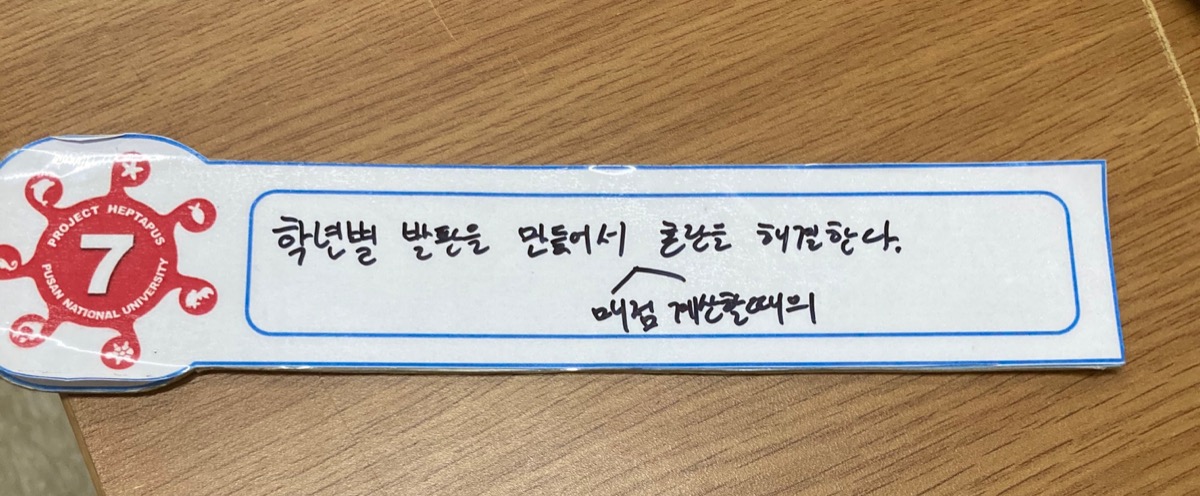 PROJECT HEPTAPUS
7
PUSAN NATIONAL UNIVERSITY
학년별 발판을 만들어서 혼란을 해결한다.
매점 계산할때의